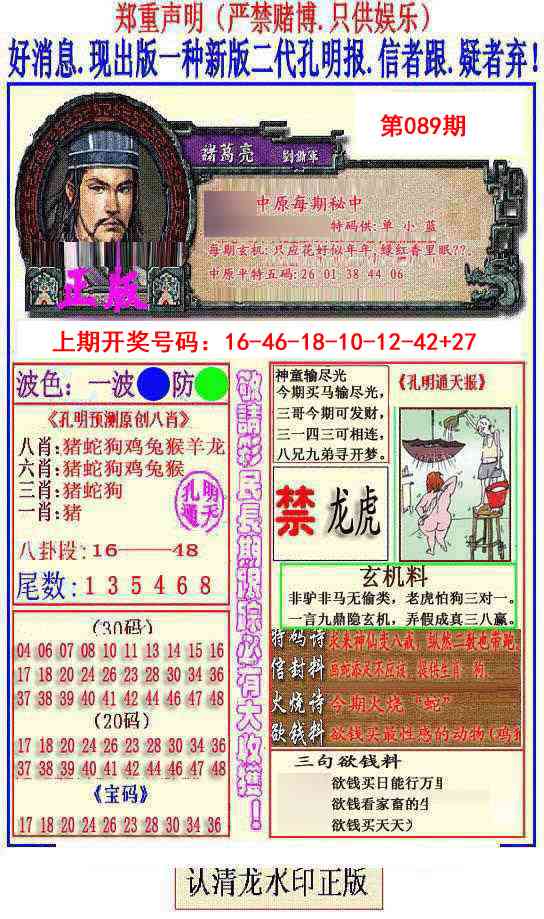 郑重声明（严禁赌博.只供娱乐）
好消息.现出版一种新版二代孔明报.信者跟.疑者弃!
第089期
諸葛亮
中原每期秘中
特码供:单 小 蓝
每期玄机:只应花好似年年,绿红香里眠??.
中原平特五码:26 01 38 44 06
正版
上期开奖号码：16-46-18-10-12-42+27
波色：一波 防
《孔明预测原创八肖》
八肖:猪蛇狗鸡兔猴羊龙
六肖:猪蛇狗鸡兔猴
三肖:猪蛇狗
一肖:猪
孔明
通天
八卦段:16———48
尾数:1 3 5 4 6 8
(30码)
04 06 07 08 10 11 13 14 15 16
17 18 20 24 26 23 28 30 34 36
37 38 40 42 44 43 45 46 47 48
(20码)
17 18 20 24 26 23 28 30 34 36
37 38 40 42 44 43 45 46 47 48
《宝码》
17 18 20 24 26 23 28 30 34 36
敬請彩民長期跟踪必有大收獲！
神童输尽光
今期买马输尽光，
三哥今期可发财，
三一四三可相连，
八兄九弟寻开梦。
《孔明通天报》
禁 龙虎
玄机料
非驴非马无偷类，老虎怕狗三对一。
一言九鼎隐玄机，弄假成真三八赢。
特码诗
信封料
火烧诗 今期火烧“蛇”
欲钱料 欲钱买最性感的动物
三句欲钱料
欲钱买日能行万
欲钱看家畜的
欲钱买天天
认清龙水印正版